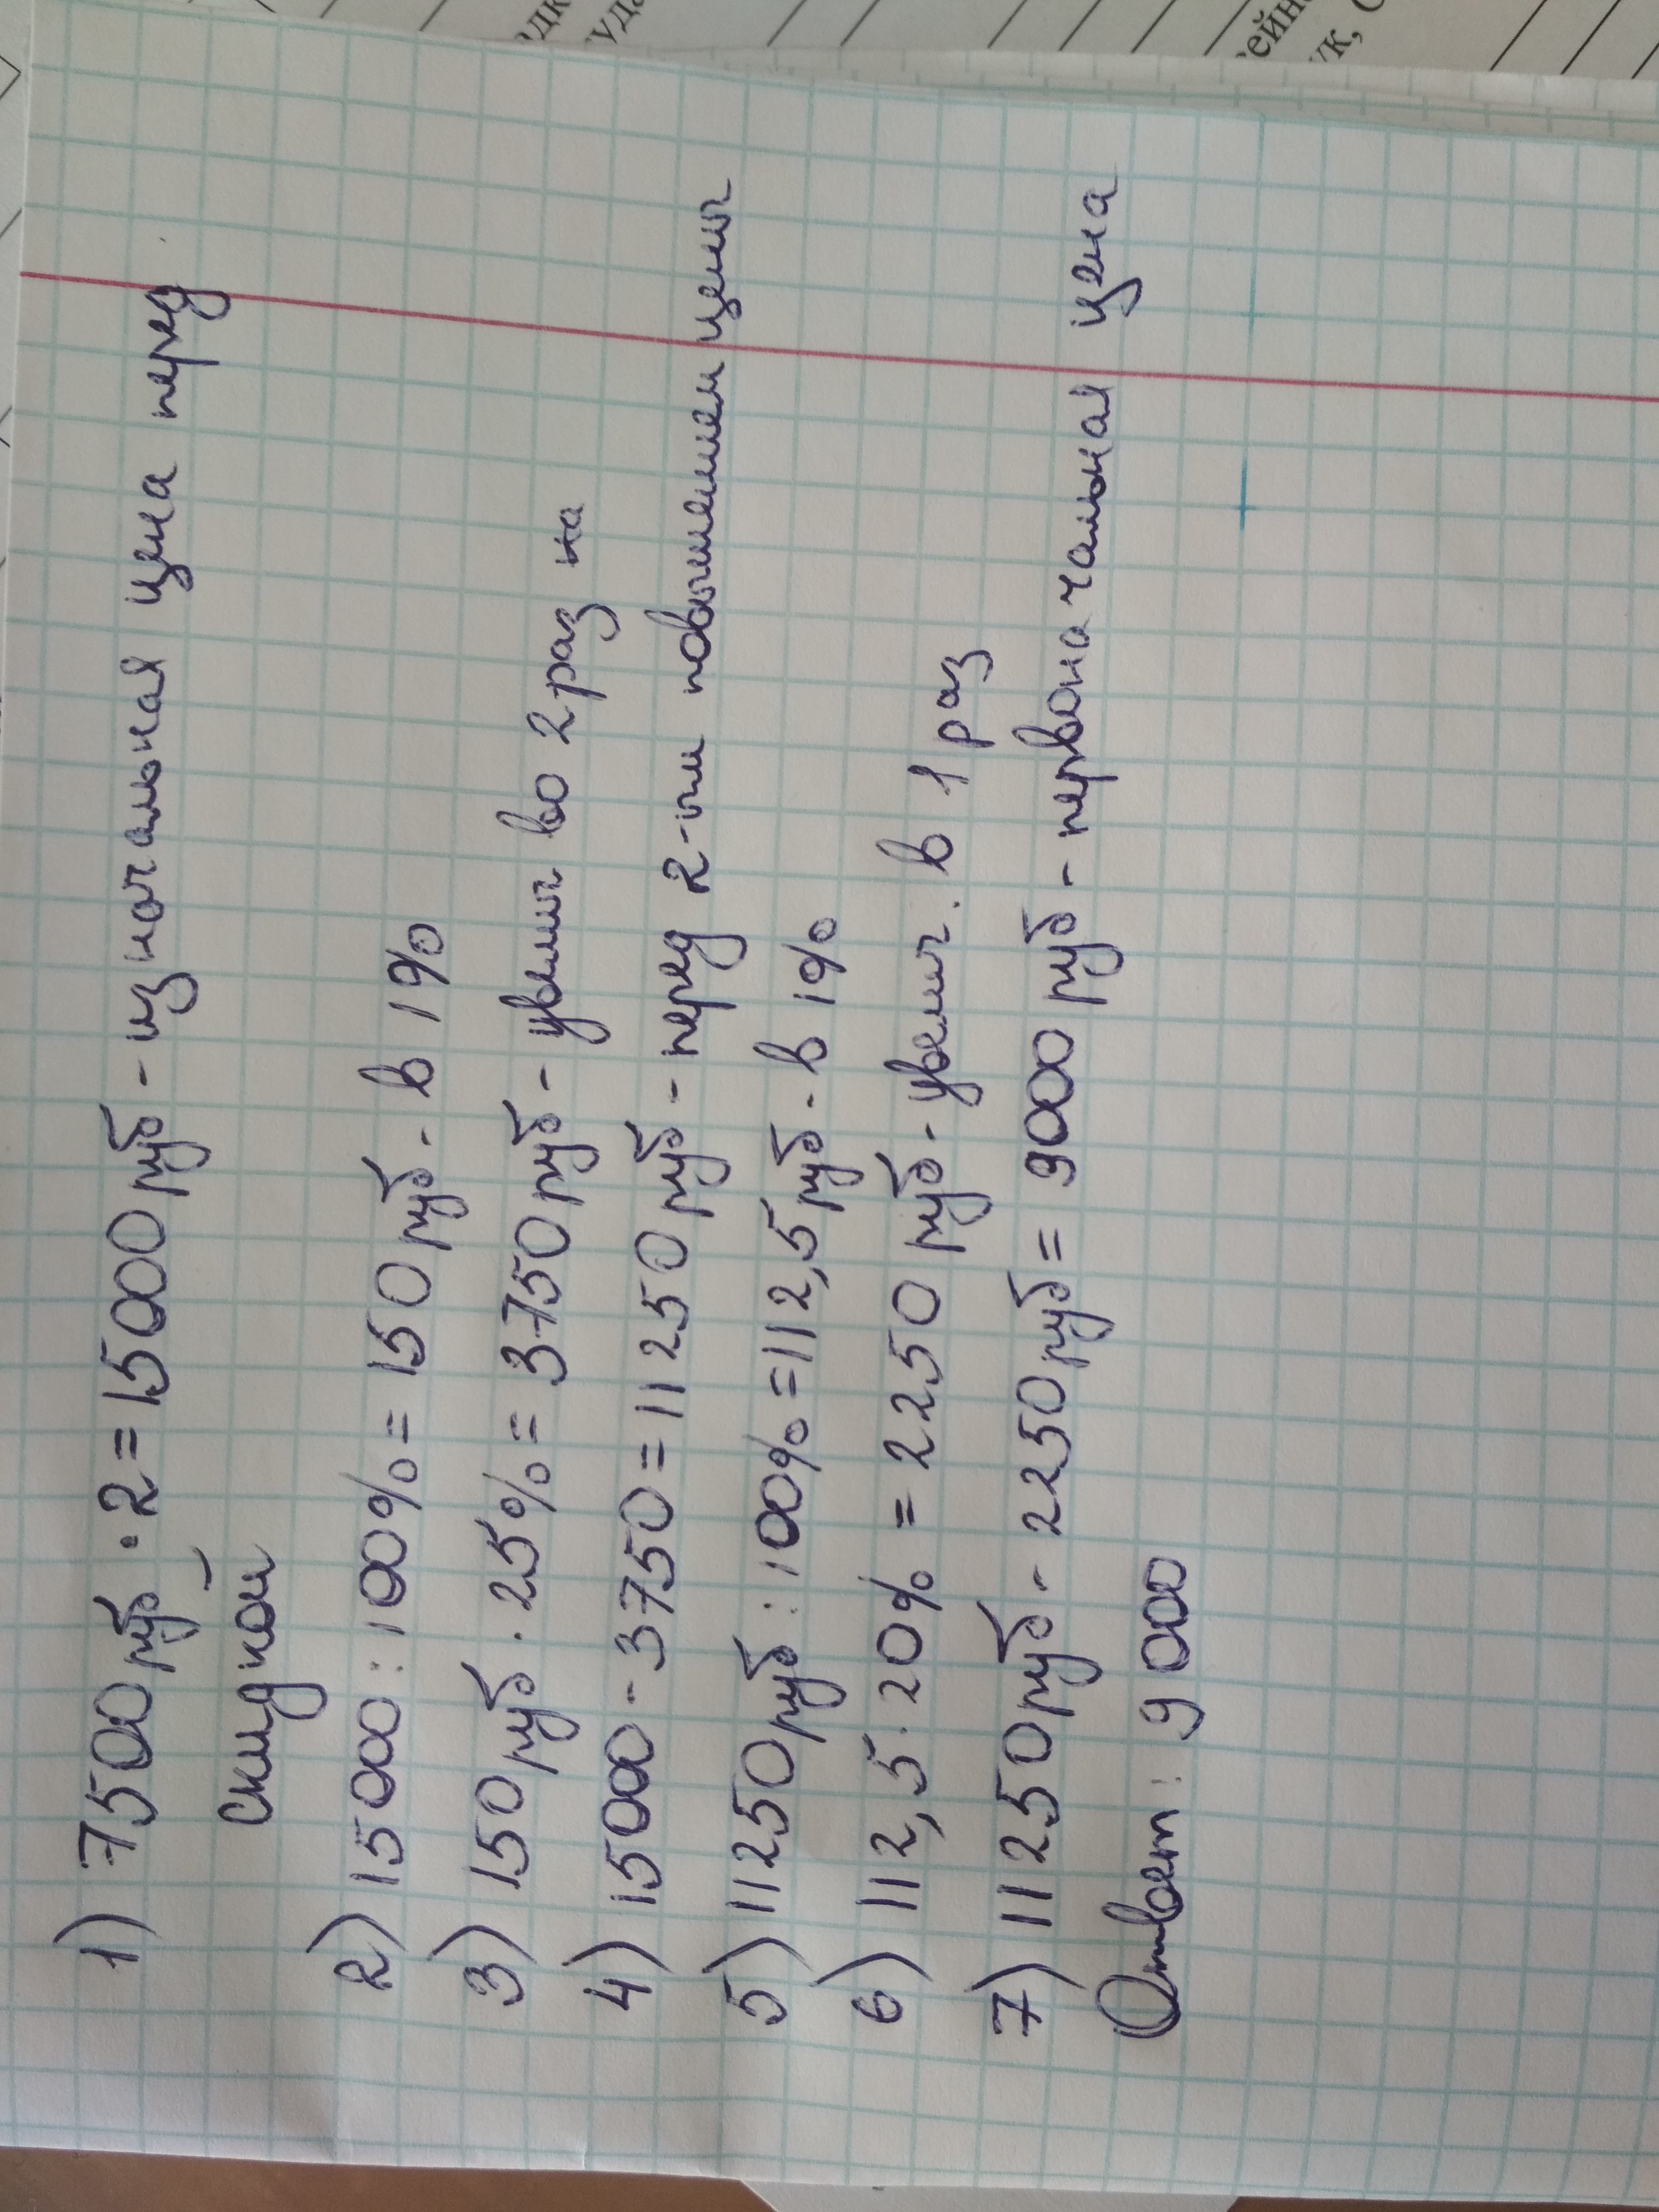 1) 7500 руб · 2 = 15000 руб - изначальная цена перед
скидкой
2) 15000 : 100% = 150 руб - в 1%
3) 150 руб · 25% = 3750 руб - увелич во 2 раз на
4) 15000 - 3750 = 11250 руб - перед 2-ым повышением цены
5) 11250 руб : 100% = 112,5 руб - в 1%
6) 112,5 · 20% = 2250 руб - увелич. в 1 раз
7) 11250 руб - 2250 руб = 9000 руб - первоначальная цена
Ответ: 9000